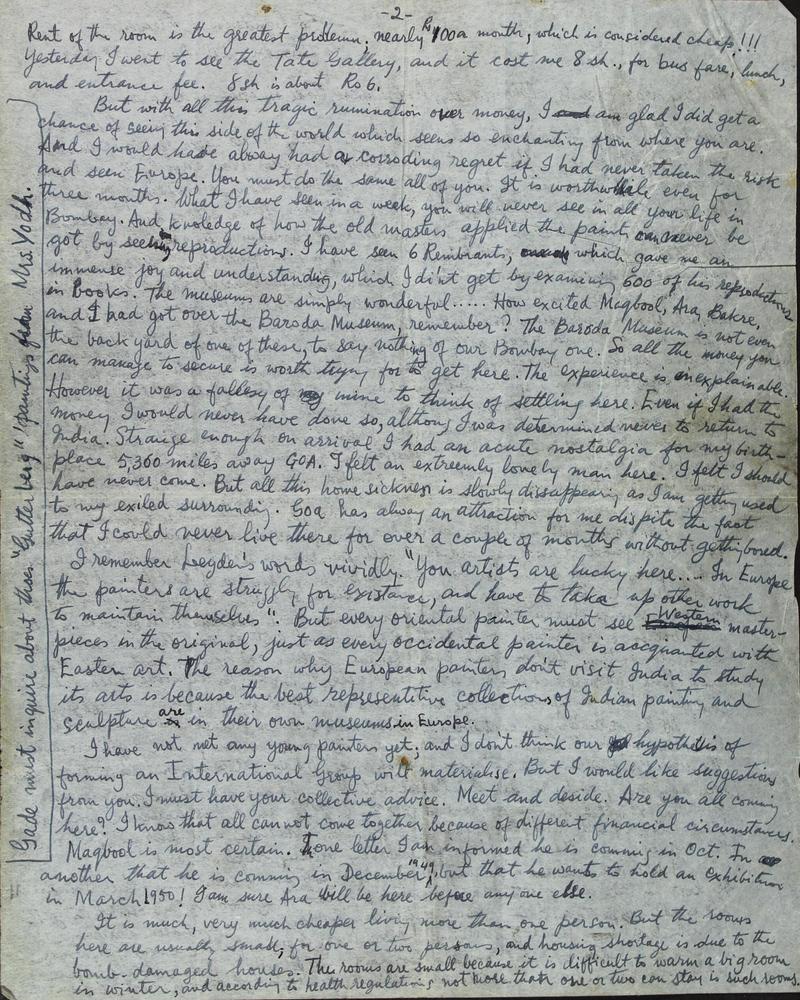 -2-
Rent of the room is the greatest problem, nearly Rs 100 a month, which is considered cheap!!!
Yesterday I went to see the Tate Gallery, and it cost me 8 sh., for bus fare, lunch,
and entrance fee. 8 sh is about Rs 6.
But with all this tragic rumination over money, I am glad I did get a
chance of seeing this side of the world which seens so enchanting from where you are.
And I would have alway had a corroding regret if I had never taken the risk
and seen Europe. You must do the same all of you. It is worthwhile even for
three months. What I have seen in a week, you will never see in all your life in
Bombay. And knoledge of how the old masters applied the paint can never be
got by seeing reproductions. I have seen 6 Rembrants, which gave me an
immense joy and understanding, which I di'nt get by examining 600 of his reproductions
in books. The museums are simply wonderful..... How excited Maqbool, Ara, Bakre,
and I had got over the Baroda Museum, remember? The Baroda Museum is not even
the back yard of one of these, to say nothing of our Bombay one. So all the money you
can manage to secure is worth tryng for to get here. The experience is enexplainable.
However it was a fallesy of mine to think of settling here. Even if I had the
money I would never have done so, althoug I was determined never to return to
India. Strange enough on arrival I had an acute nostalgia for my birth-
place 5,360 miles away GOA. I felt an extreemly lonely man here. I felt I should
have never come. But all this home sickness is slowly dissappearing as I am getting used
to my exiled surrounding. Goa has alway an attraction for me dispite the fact
that I could never live there for over a couple of months without getting bored.
I remember Leyden's words vividly. "You artists are lucky here.... In Europe
the painters are struggly for existance, and have to take up other work
to maintain themselves". But every oriental painter must see Western master-
pieces in the original, just as every occidental painter is acquanted with
Eastern art. The reason why European painters don't visit India to study
its arts is because the best representitive collections of Indian painting and
sculpture are in their own museums in Europe.
I have not met any young painters yet; and I don't think our hypothesis of
forming an International Group will materialise. But I would like suggestions
from you. I must have your collective advice. Meet and deside. Are you all coming
here? I know that all cannot come together because of different financial circumstances.
Maqbool is most certain. In one letter I am informed he is comming in Oct. In
another that he is comming in December 1949, but that he wants to hold an exhibition
in March 1950! I am sure Ara will be here before any one else.
It is much, very much cheaper living more than one person. But the rooms
here are usually small, for one or two persons, and housing shortage is due to the
bomb-damaged houses. The rooms are small because it is difficult to warm a big room
in winter, and according to health regulations not more than one or two can stay is such rooms.
Gade must inquire about those "Gutterberg" paintings from Mrs Yodh.